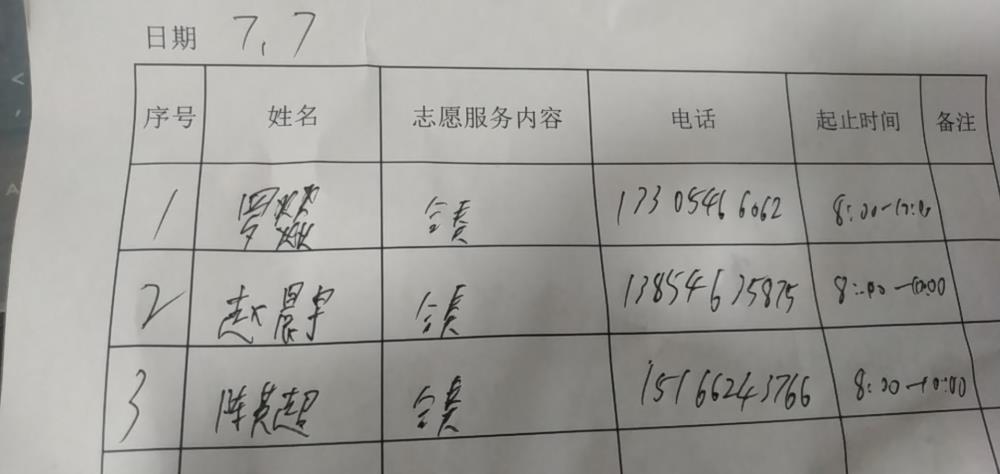 日期 7.7
序号 姓名 志愿服务内容 电话 起止时间 备注
1 罗燚焱 全天 13305466062 8:00-10:00
2 赵晨宇 13854635875 8:00-10:00
3 陈英超 15166243766 8:00-10:00